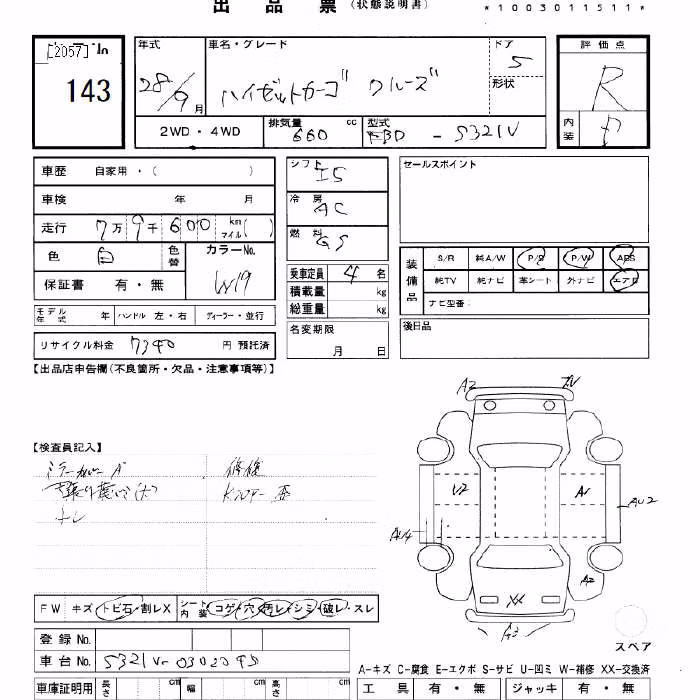 出品票(状態説明書)
*1003011511*
[2057] In
143
年式
28/9月
車名・グレード
ハイゼットカーゴ クルーズ
ドア
5
形状
評価点
R
内装
2WD・4WD
排気量 cc
660
型式
-S321V
車歴 自家用・( )
車検 年 月
走行 7万9千600km マイル( )
色 白 色替
カラーNo.
W19
保証書 有・無
モデル年式 年 ハンドル 左・右 ディーラー・並行
リサイクル料金 7340 円 預託済
シフト
冷房 AC
燃料 GS
乗車定員 4 名
積載量 kg
総重量 kg
名変期限
月 日
セールスポイント
装備品
S/R 純A/W P/S P/W ABS
純TV 純ナビ 革シート 外ナビ エアB
ナビ型番:
後日品
【出品店申告欄(不良箇所・欠品・注意事項等)】
【検査員記入】
ミラーカバー A
修復
A2
U2
A1
AU2
AU4
A2
XX
A3
FW キズ・トビ石・割レX シート内装 コゲ・穴・汚レ・シミ・破レ・スレ
登録No.
車台No. S321V-0302095
スペア
A-キズ C-腐食 E-エクボ S-サビ U-凹ミ W-補修 XX-交換済
車庫証明用 長さ cm 幅 cm 高さ cm
工具 有・無 ジャッキ 有・無